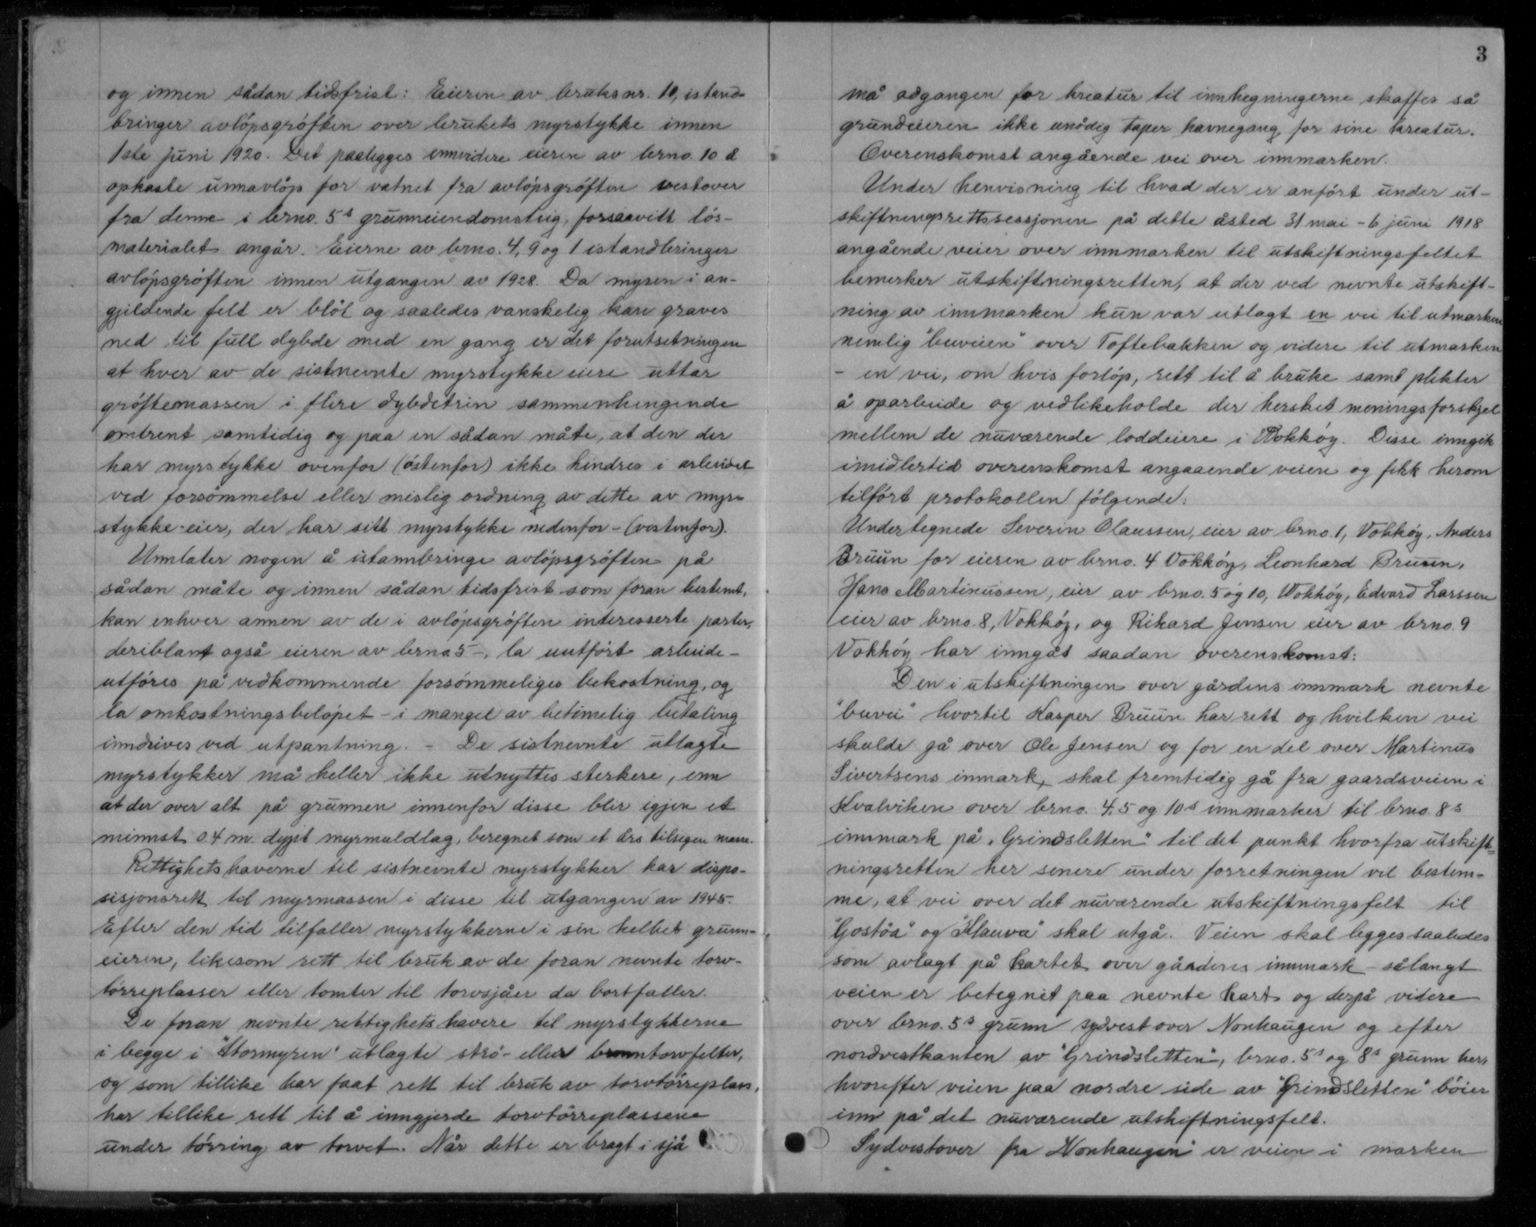 og innen sådan tidsfrist: Eieren av bruksnr. 10, istand-
bringer avlöpsgröften over brukets myrstykke innen
1ste juni 1920. Det paaligges innvidere eieren av brno. 10 å
opkaste unnavlöp for vatnet fra avlöpsgröften vestover
fra denne i brno. 5s grunneiendomsteig, forsaavitt lös-
materialet angår. Eierne av brno. 4, 9 og 1 istandbringer
avlöpsgröften innen utgangen av 1928. Da myren i an-
gjeldende felt er blöt og saaledes vanskelig kan graves
ned til full dybde med en gang er det forutsetningen
at hver av de sistnevnte myrstykke eiere uttar
gröftemassen i flere dybdetrin sammenhengende
omtrent samtidig og paa en sådan måte, at den der
har myrstykke ovenfor (östenfor) ikke hindres i arbeidet
ved forsömmelse eller mislig ordning av dette av myr-
stykke-eier, der har sitt myrstykke nedenfor - (vestenfor).
Unnlater nogen å istannbringe avlöpsgröften på
sådan måte og innen sådan tidsfrist som foran bestemt,
kan enhver annen av de i avlöpsgröften interesserte parter,
deriblant også eieren av brno 5 -, la uutfört arbeide -
utföres på vedkommende forsömmeliges bekostning, og
la omkostningsbelöpet - i mangel av betimelig betaling
inndrives ved utpantning. - De sistnevnte utlagte
myrstykker må heller ikke utnyttes sterkere, enn
at der over alt på grunnen innenfor disse blir igjen et
minnst 0.4 m. dypt myrmuldlag, beregnet som et års tilsigen masse.
Rettighetshaverne til sistnevnte myrstykker har dispo-
sisjonsrett til myrmassen i disse til utgangen av 1945.
Efter den tid tilfaller myrstykkerne i sin helhet grunn-
eieren, likesom rett til bruk av de foran nevnte torv-
törreplasser eller tomter til torvsjåer da bortfaller.
De foran nevnte rettighetshavere til myrstykkerne
i begge i "Stormyren" utlagte strö- eller brenntorvfelter,
og som tillike har faat rett til bruk av torvtörreplass,
har tillike rett til å inngjerde torvtörreplassene
under törring av torvet. Når dette er bragt i sjå
3
må adgangen for kreatur til innhegningerne skaffes så
grundeieren ikke unödig taper havnegang for sine kreatur.
Overenskomst angående vei over innmarken.
Under henvisning til hvad der er anfört under ut-
skiftningsrettssessjonen på dette åsted 31 mai - 6 juni 1918
angående veier over innmarken til utskiftningsfeltet
bemerker utskiftningsretten, at der ved nevnte utskift-
ning av innmarken kun var utlagt en vei til utmarken
nemlig "buveien" over Toftebakken og videre til utmarken
- en vei, om hvis forlöp, rett til å bruke samt plikter
å oparbeide og vedlikeholde der hersket meningsforskjel
mellem de nuværende loddeiere i Vokköy. Disse inngik
imidlertid overenskomst angaaende veiene og fikk herom
tilfört protokollen fölgende:
Undertegnede Severin Olaussen, eier av brno. 1, Vokköy, Anders
Bruun for eieren av brno. 4 Vokköy, Leonhard Bruun,
Hans Martinussen, eier av brno. 5 og 10, Vokköy, Edvard Larssen
eier av brno. 8, Vokköy, og Rikard Jensen eier av brno. 9
Vokköy har inngåt saadan overenskomst:
Den i utskiftningen over gårdens innmark nevnte
"buvei" hvortil Kasper Bruun har rett og hvilken vei
skulde gå over Ole Jensen og for en del over Martinus
Sivertsens inmark, skal fremtidig gå fra gaardsveien i
Kvalviken over brno. 4, 5 og 10s innmarker til brno. 8s
innmark på "Grindsletten" til det punkt hvorfra utskift-
ningsretten her senere under forretningen vil bestem-
me, at vei over det nuværende utskiftningsfelt til
og skal utgå. Veien skal legges saaledes
som avlagt på kartet over gårdens innmark - sålangt
veien er betegnet paa nevnte kart og derpå videre
over brno. 5s grunn sydvest over Nonhaugen og efter
nordvestkanten av "Grindsletten", brno. 5s og 8s grunn her,
hvorefter veien paa nordre side av "Grindsletten" böier
inn på det nuværende utskiftningsfelt.
Sydvestover fra "Nonhaugen" er veien i marken